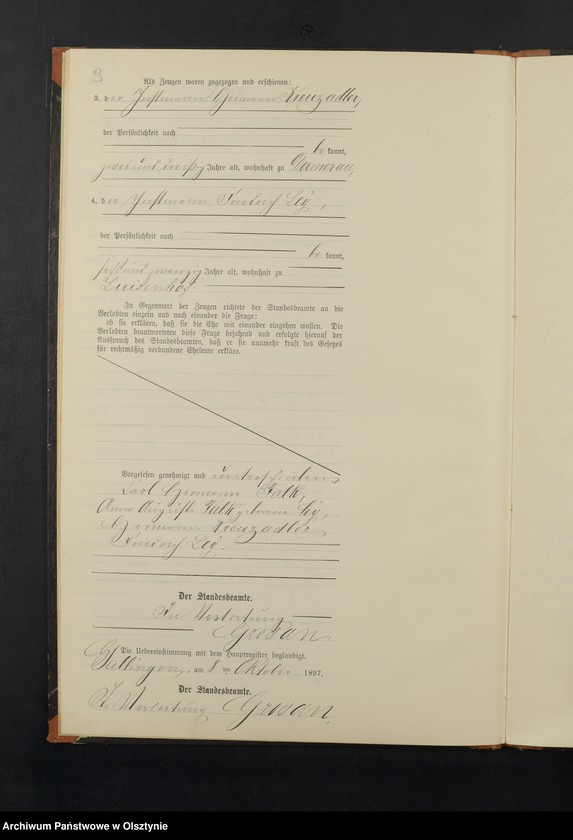 9
Als Zeugen waren zugezogen und erschienen:
3. der Instmann Hermann Kreuzadler,
der Persönlichkeit nach
be kannt,
zwei und dreißig Jahre alt, wohnhaft zu Damerau,
4. der Instmann Friedrich Leg,
der Persönlichkeit nach
be kannt,
sechs und zwanzig Jahre alt, wohnhaft zu
Luisenhof
In Gegenwart der Zeugen richtete der Standesbeamte an die
Verlobten einzeln und nach einander die Frage:
ob sie erklären, daß sie die Ehe mit einander eingehen wollen. Die
Verlobten beantworteten diese Frage bejahend und erfolgte hierauf der
Ausspruch des Standesbeamten, daß er sie nunmehr kraft des Gesetzes
für rechtmäßig verbundene Eheleute erkläre.
Vorgelesen genehmigt und unterschrieben
Carl Hermann Falk,
Anna Auguste Falk geborene Leg,
Hermann Kreuzadler
Friedrich Leg.
Der Standesbeamte.
In Vertretung
Die Uebereinstimmung mit dem Hauptregister beglaubigt.
Gallingen, am 8 ten Oktober 1897.
Der Standesbeamte.
In Vertretung
Archiwum Państwowe w Olsztynie